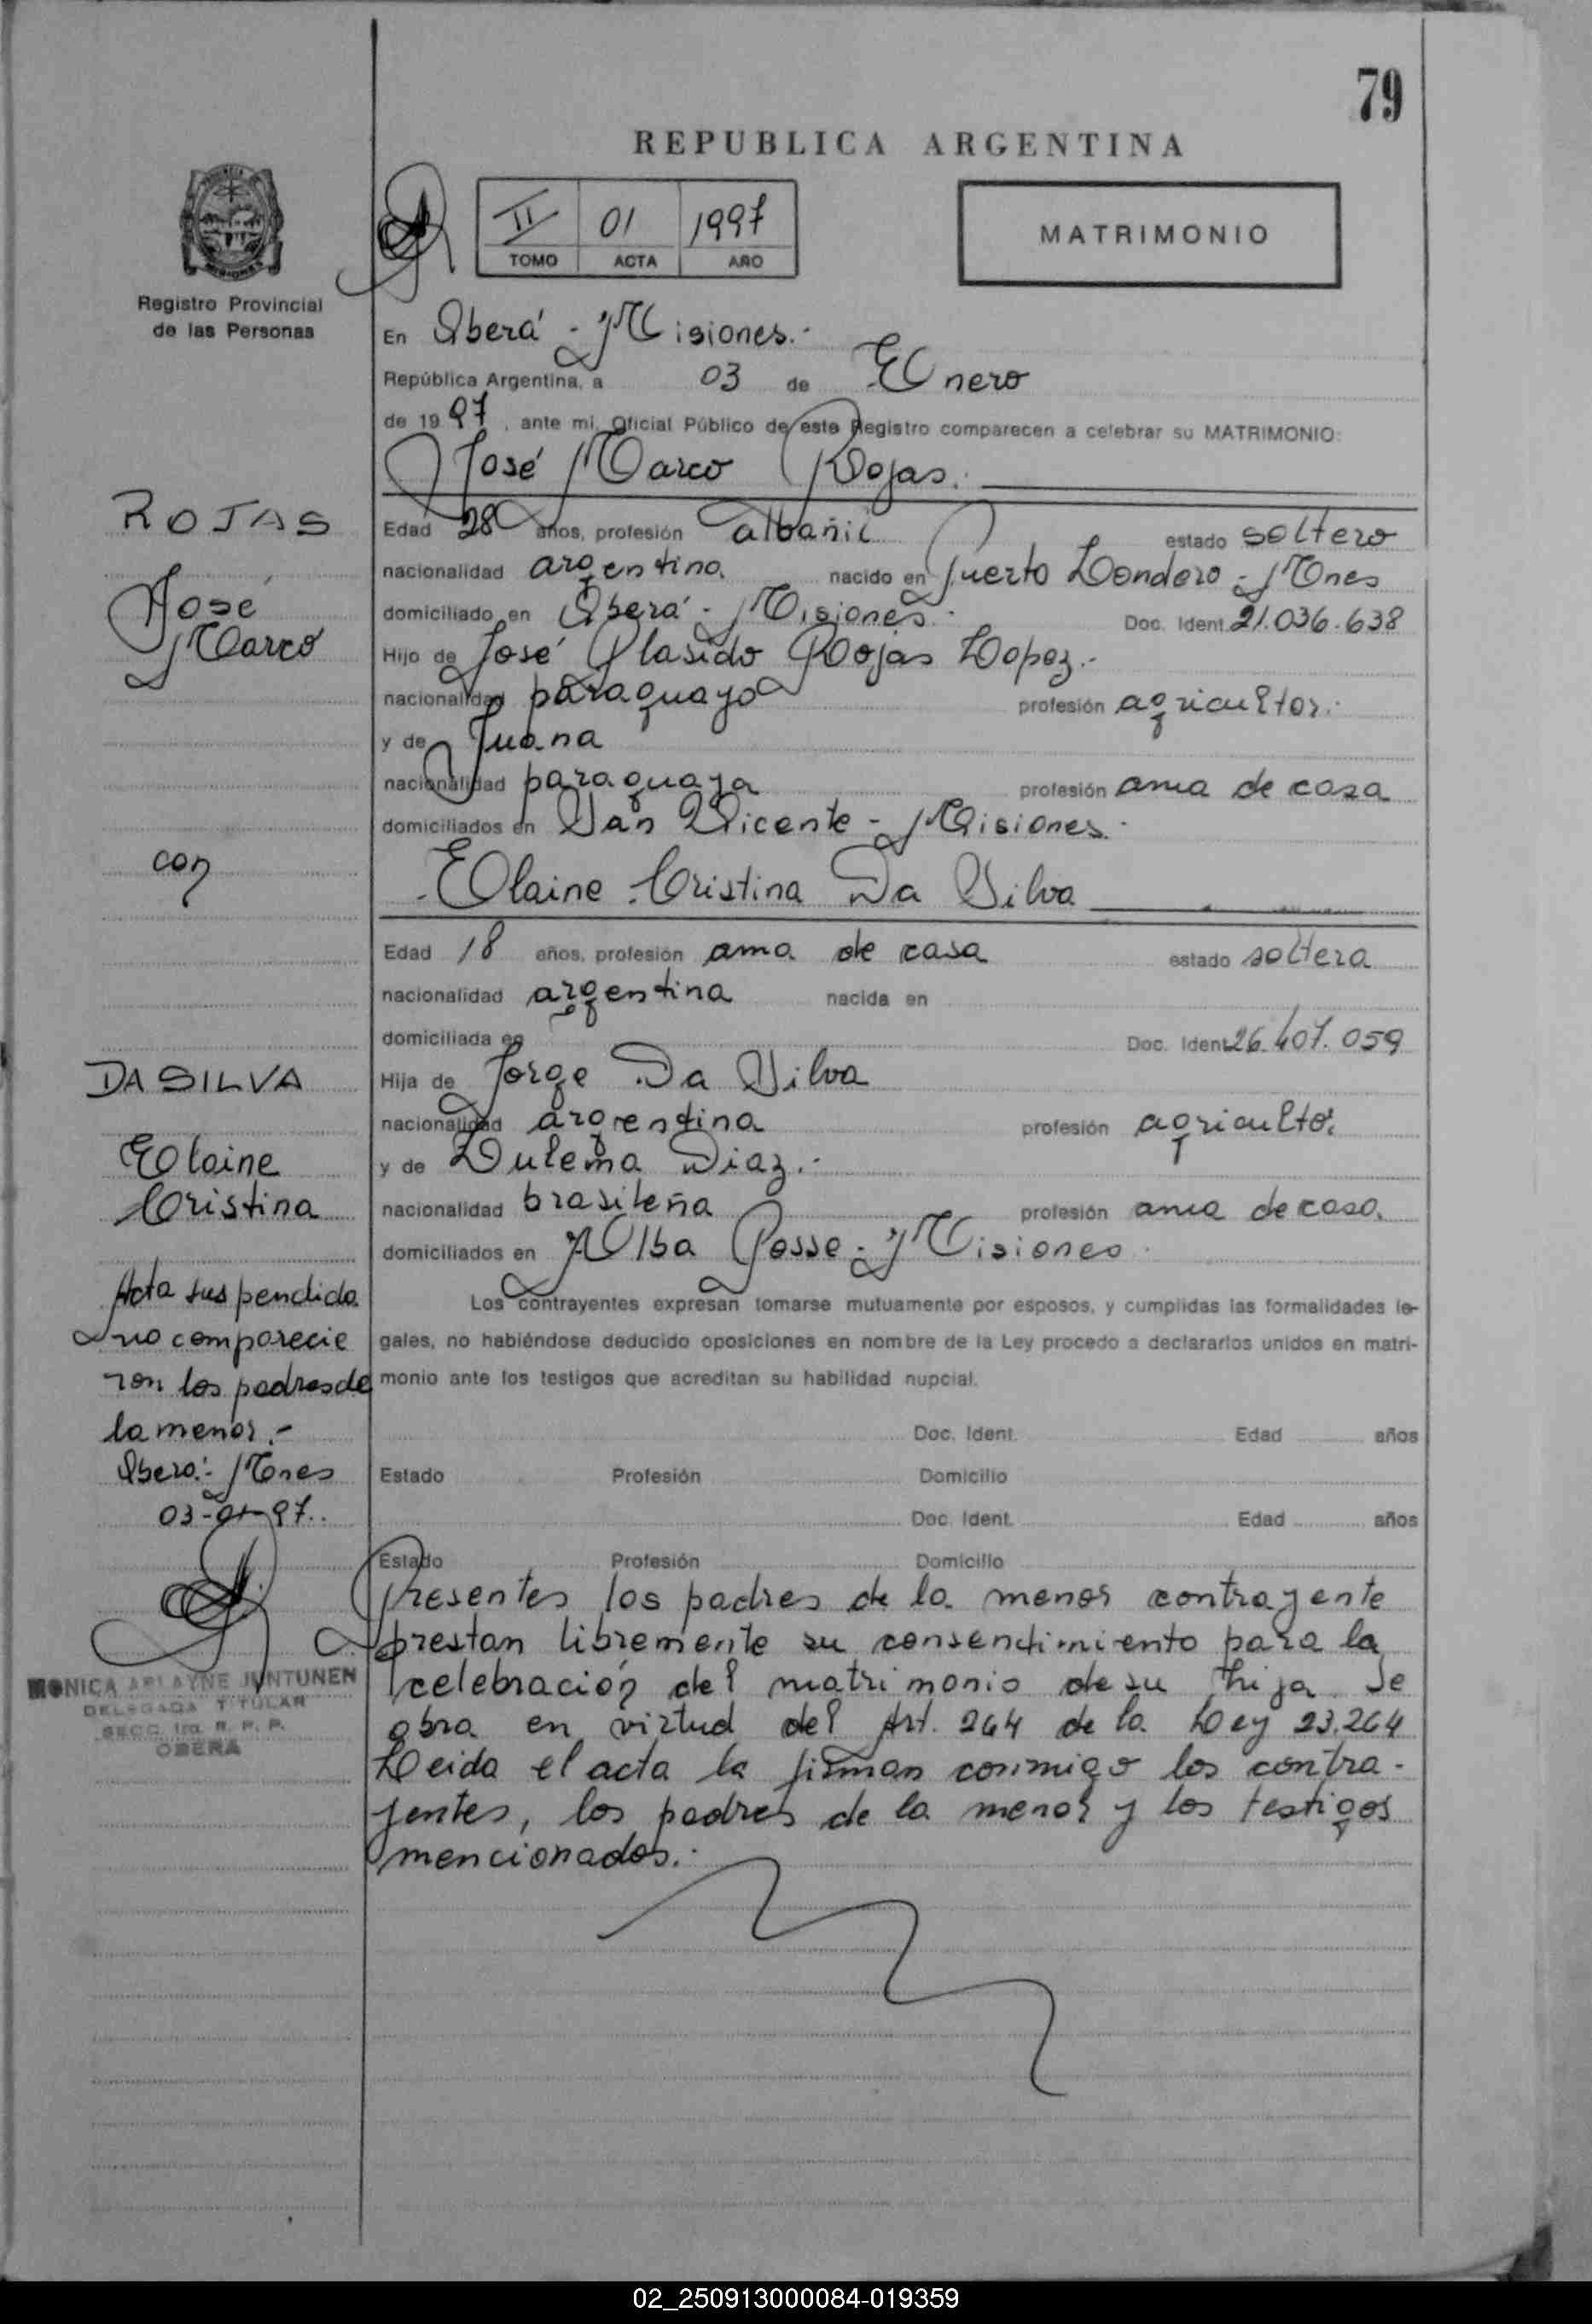 79
REPUBLICA ARGENTINA
II 01 1997
TOMO ACTA AÑO
MATRIMONIO
Registro Provincial
de las Personas
En Oberá - Misiones.-
República Argentina, a 03 de Enero
de 1997, ante mi, Oficial Público de este Registro comparecen a celebrar su MATRIMONIO:
José Marco Rojas.
ROJAS
José
Marco
Edad 28 años, profesión albañil estado soltero
nacionalidad argentina nacido en Puerto Londero - Mnes
domiciliado en Oberá - Misiones.- Doc. Ident. 21.036.638
Hijo de José Plasido Rojas Lopez.-
nacionalidad paraguayo profesión agricultor.-
y de Juana
nacionalidad paraguaya profesión ama de casa
domiciliados en San Vicente - Misiones.-
con
Elaine Cristina Da Silva
Edad 18 años, profesión ama de casa estado soltera
nacionalidad argentina nacida en
domiciliada en Doc. Ident. 26.407.059
DA SILVA
Elaine
Cristina
Hija de Jorge Da Silva
nacionalidad argentina profesión agricultor
y de Zulema Diaz.-
nacionalidad brasileña profesión ama de casa
domiciliados en Alba Posse - Misiones.
Los contrayentes expresan tomarse mutuamente por esposos, y cumplidas las formalidades le-
gales, no habiéndose deducido oposiciones en nombre de la Ley procedo a declararlos unidos en matri-
monio ante los testigos que acreditan su habilidad nupcial.
Acta suspendida
no comparecie
ron los padres de
la menor.-
Oberá - Mnes
03-01-97.
MONICA JUNTUNEN
DELEGADA TITULAR
SECC. 1ra. R. P. P.
OBERA
Doc. Ident. Edad años
Estado Profesión Domicilio
Doc. Ident. Edad años
Estado Profesión Domicilio
Presentes los padres de la menor contrayente
prestan libremente su consentimiento para la
celebración del matrimonio de su hija. Se
obra en virtud del Art. 264 de la Ley 23.264
Leida el acta la firman conmigo los contra-
yentes, los padres de la menor y los testigos
mencionados.-
02_250913000084-019359